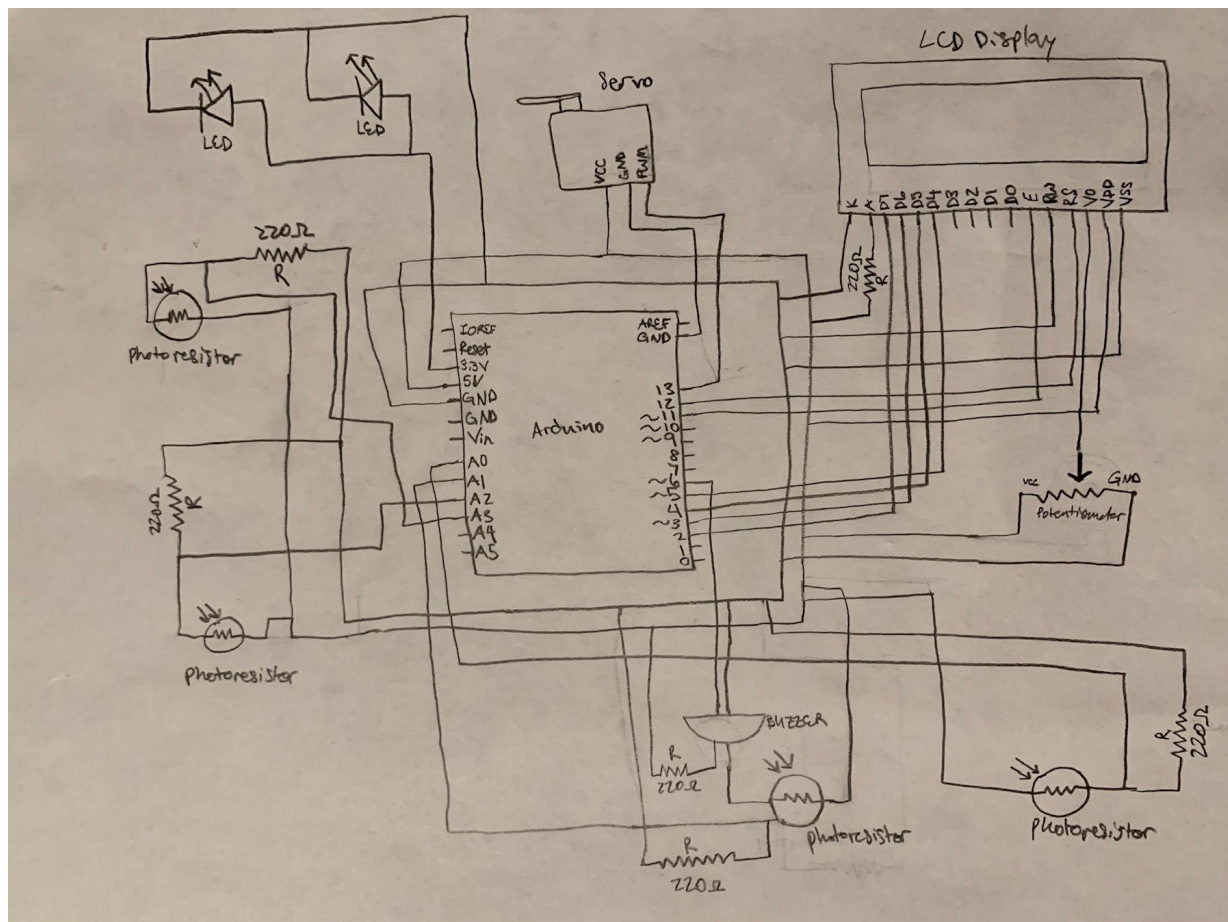 LCD Display
Servo
LED
LED
VCC
GND
PWM
K
A
D7
D6
D5
D4
D3
D2
D1
D0
E
RW
RS
VO
VDD
VSS
220Ω
R
220Ω
R
Photoresistor
IOREF
Reset
3.3V
5V
GND
GND
Vin
A0
A1
A2
A3
A4
A5
Arduino
AREF
GND
13
12
~11
~10
~9
8
7
~6
~5
4
~3
2
1
0
VCC
GND
Potentiometer
220Ω
R
photoresistor
BUZZER
R
220Ω
photoresistor
R
220Ω
R
220Ω
photoresistor